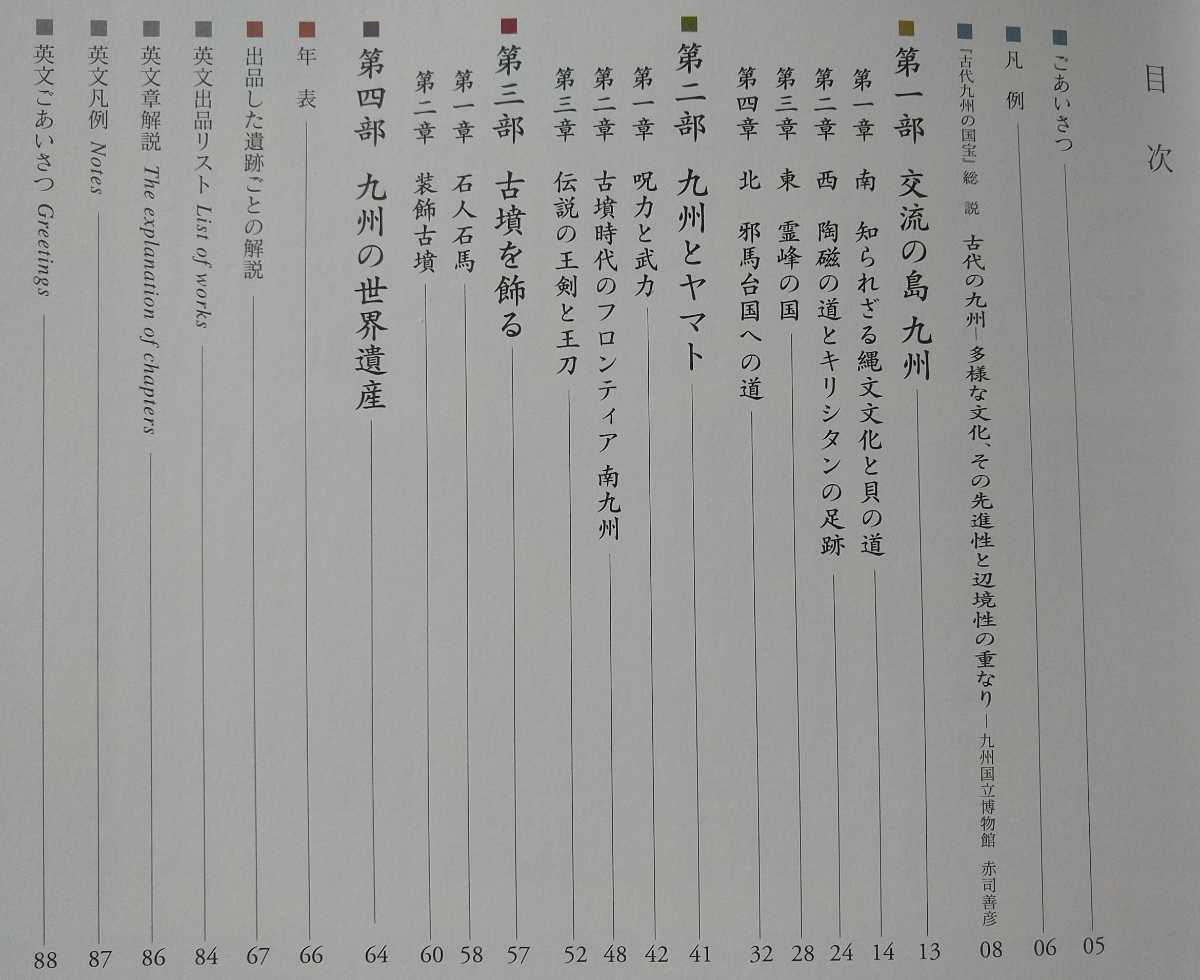 目次
ごあいさつ 05
凡例 06
『古代九州の国宝』総説 古代の九州―多様な文化、その先進性と辺境性の重なり― 九州国立博物館 赤司善彦 08
第一部 交流の島 九州 13
第一章 南 知られざる縄文文化と貝の道 14
第二章 西 陶磁の道とキリシタンの足跡 24
第三章 東 霊峰の国 28
第四章 北 邪馬台国への道 32
第二部 九州とヤマト 41
第一章 呪力と武力 42
第二章 古墳時代のフロンティア 南九州 48
第三章 伝説の王剣と王刀 52
第三部 古墳を飾る 57
第一章 石人石馬 58
第二章 装飾古墳 60
第四部 九州の世界遺産 64
年表 66
出品した遺跡ごとの解説 67
英文出品リスト List of works 84
英文章解説 The explanation of chapters 86
英文凡例 Notes 87
英文ごあいさつ Greetings 88